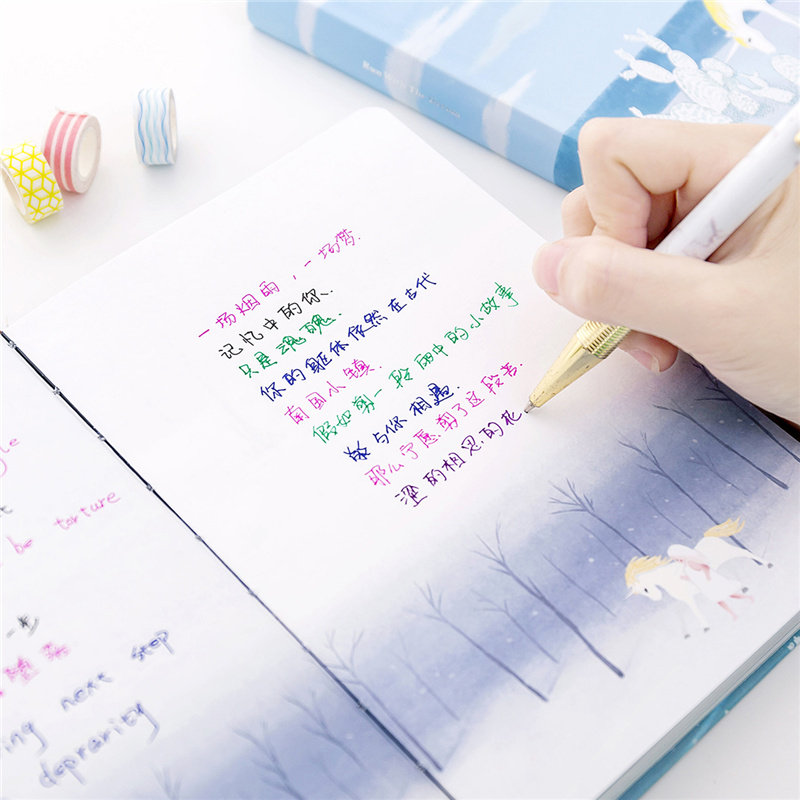 gle
t
be torture
一步
堕落
ing next step
deprarity
一场烟雨，一场梦.
记忆中的你、.
只是魂魄.
你的躯体依然在古代
南国小镇.
假如剪一段雨中的小故事
能与你相遇.
那么宁愿.剪了这段苦.
涩的相思.的花